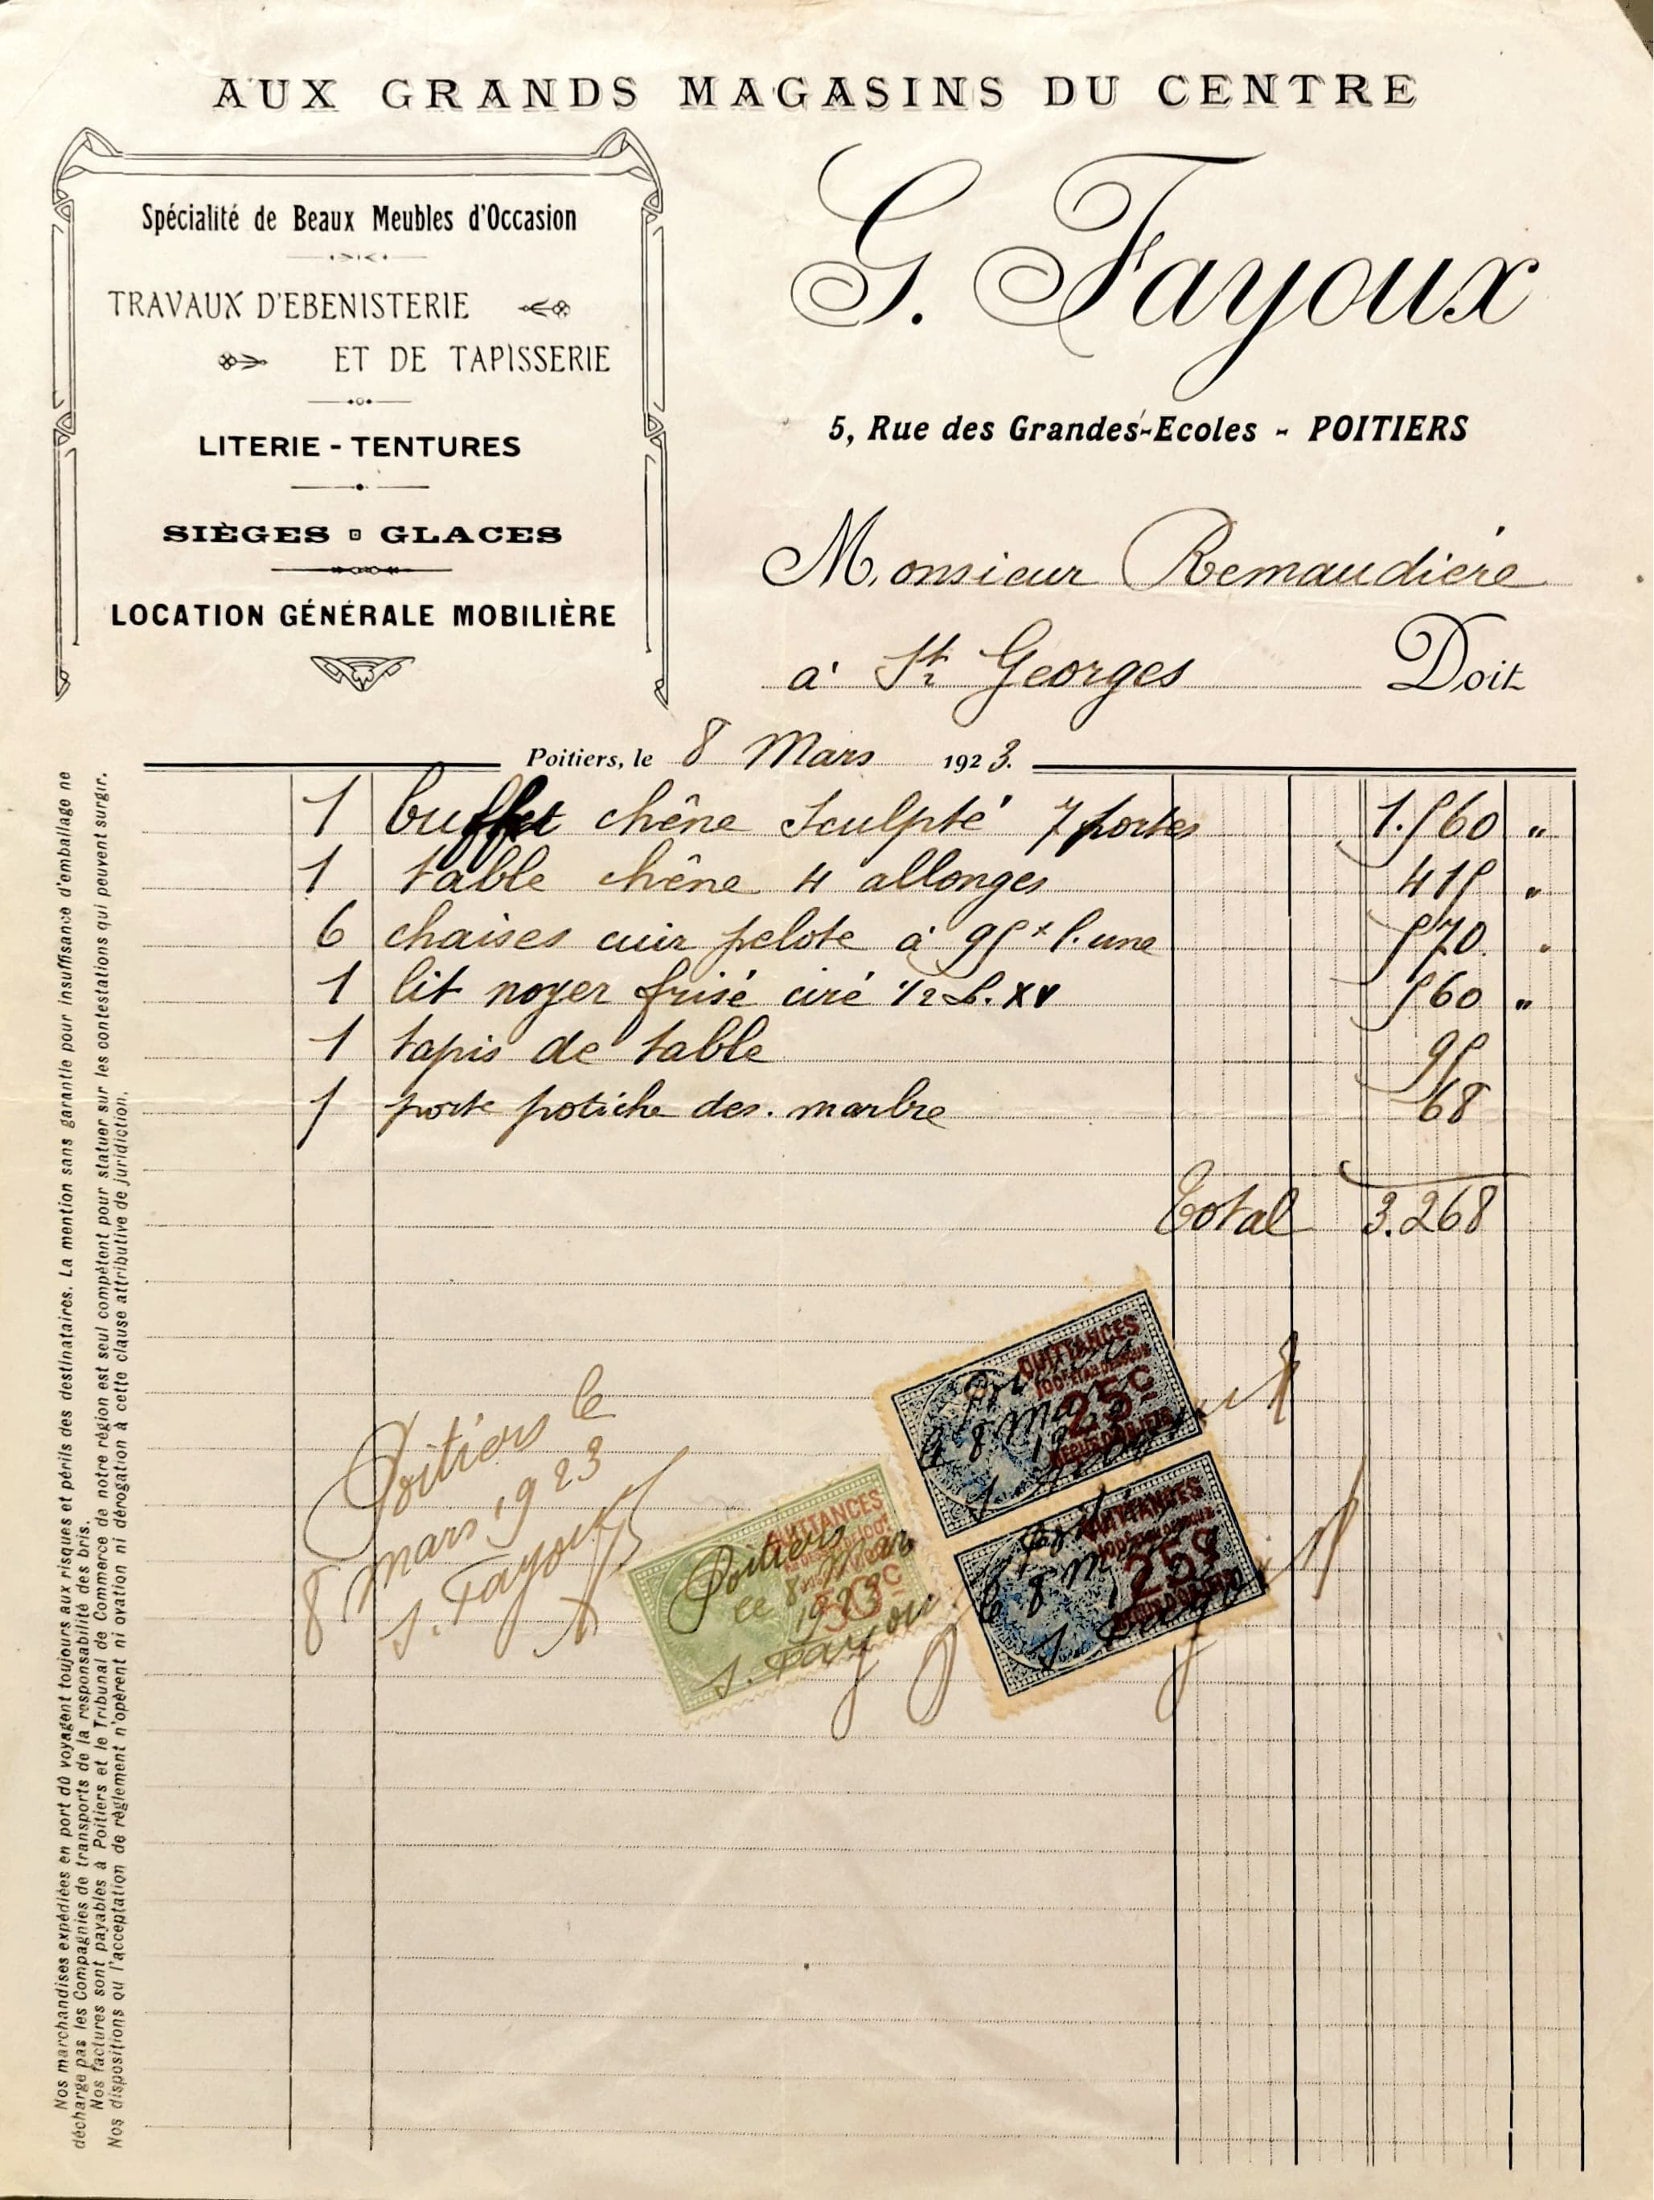 AUX GRANDS MAGASINS DU CENTRE
Spécialité de Beaux Meubles d'Occasion
TRAVAUX D'EBENISTERIE
ET DE TAPISSERIE
LITERIE - TENTURES
SIÈGES GLACES
LOCATION GÉNÉRALE MOBILIÈRE
G. Fayoux
5, Rue des Grandes-Ecoles - POITIERS
Monsieur Remaudière
à St Georges Doit
Poitiers, le 8 Mars 1923.
1 buffet chêne sculpté 7 portes 1.560 "
1 table chêne 4 allonges 415 "
6 chaises cuir pelote à 95 f. l'une 570 "
1 lit noyer frisé ciré 1/2 L. XV 560 "
1 tapis de table 95
1 porte potiche des. marbre 68
Total 3.268
Poitiers le
8 mars 1923
G. Fayoux
QUITTANCES
50c
Poitiers
le 8 Mars
1923
G. Fayoux
QUITTANCES
25c
le 8 Mars
QUITTANCES
25c
le 8 M
Nos marchandises expédiées en port dû voyagent toujours aux risques et périls des destinataires. La mention sans garantie pour insuffisance d'emballage ne
décharge pas les Compagnies de transports de la responsabilité des bris.
Nos factures sont payables à Poitiers et le Tribunal de Commerce de notre région est seul compétent pour statuer sur les contestations qui peuvent surgir.
Nos dispositions ou l'acceptation de règlement n'opèrent ni novation ni dérogation à cette clause attributive de juridiction.